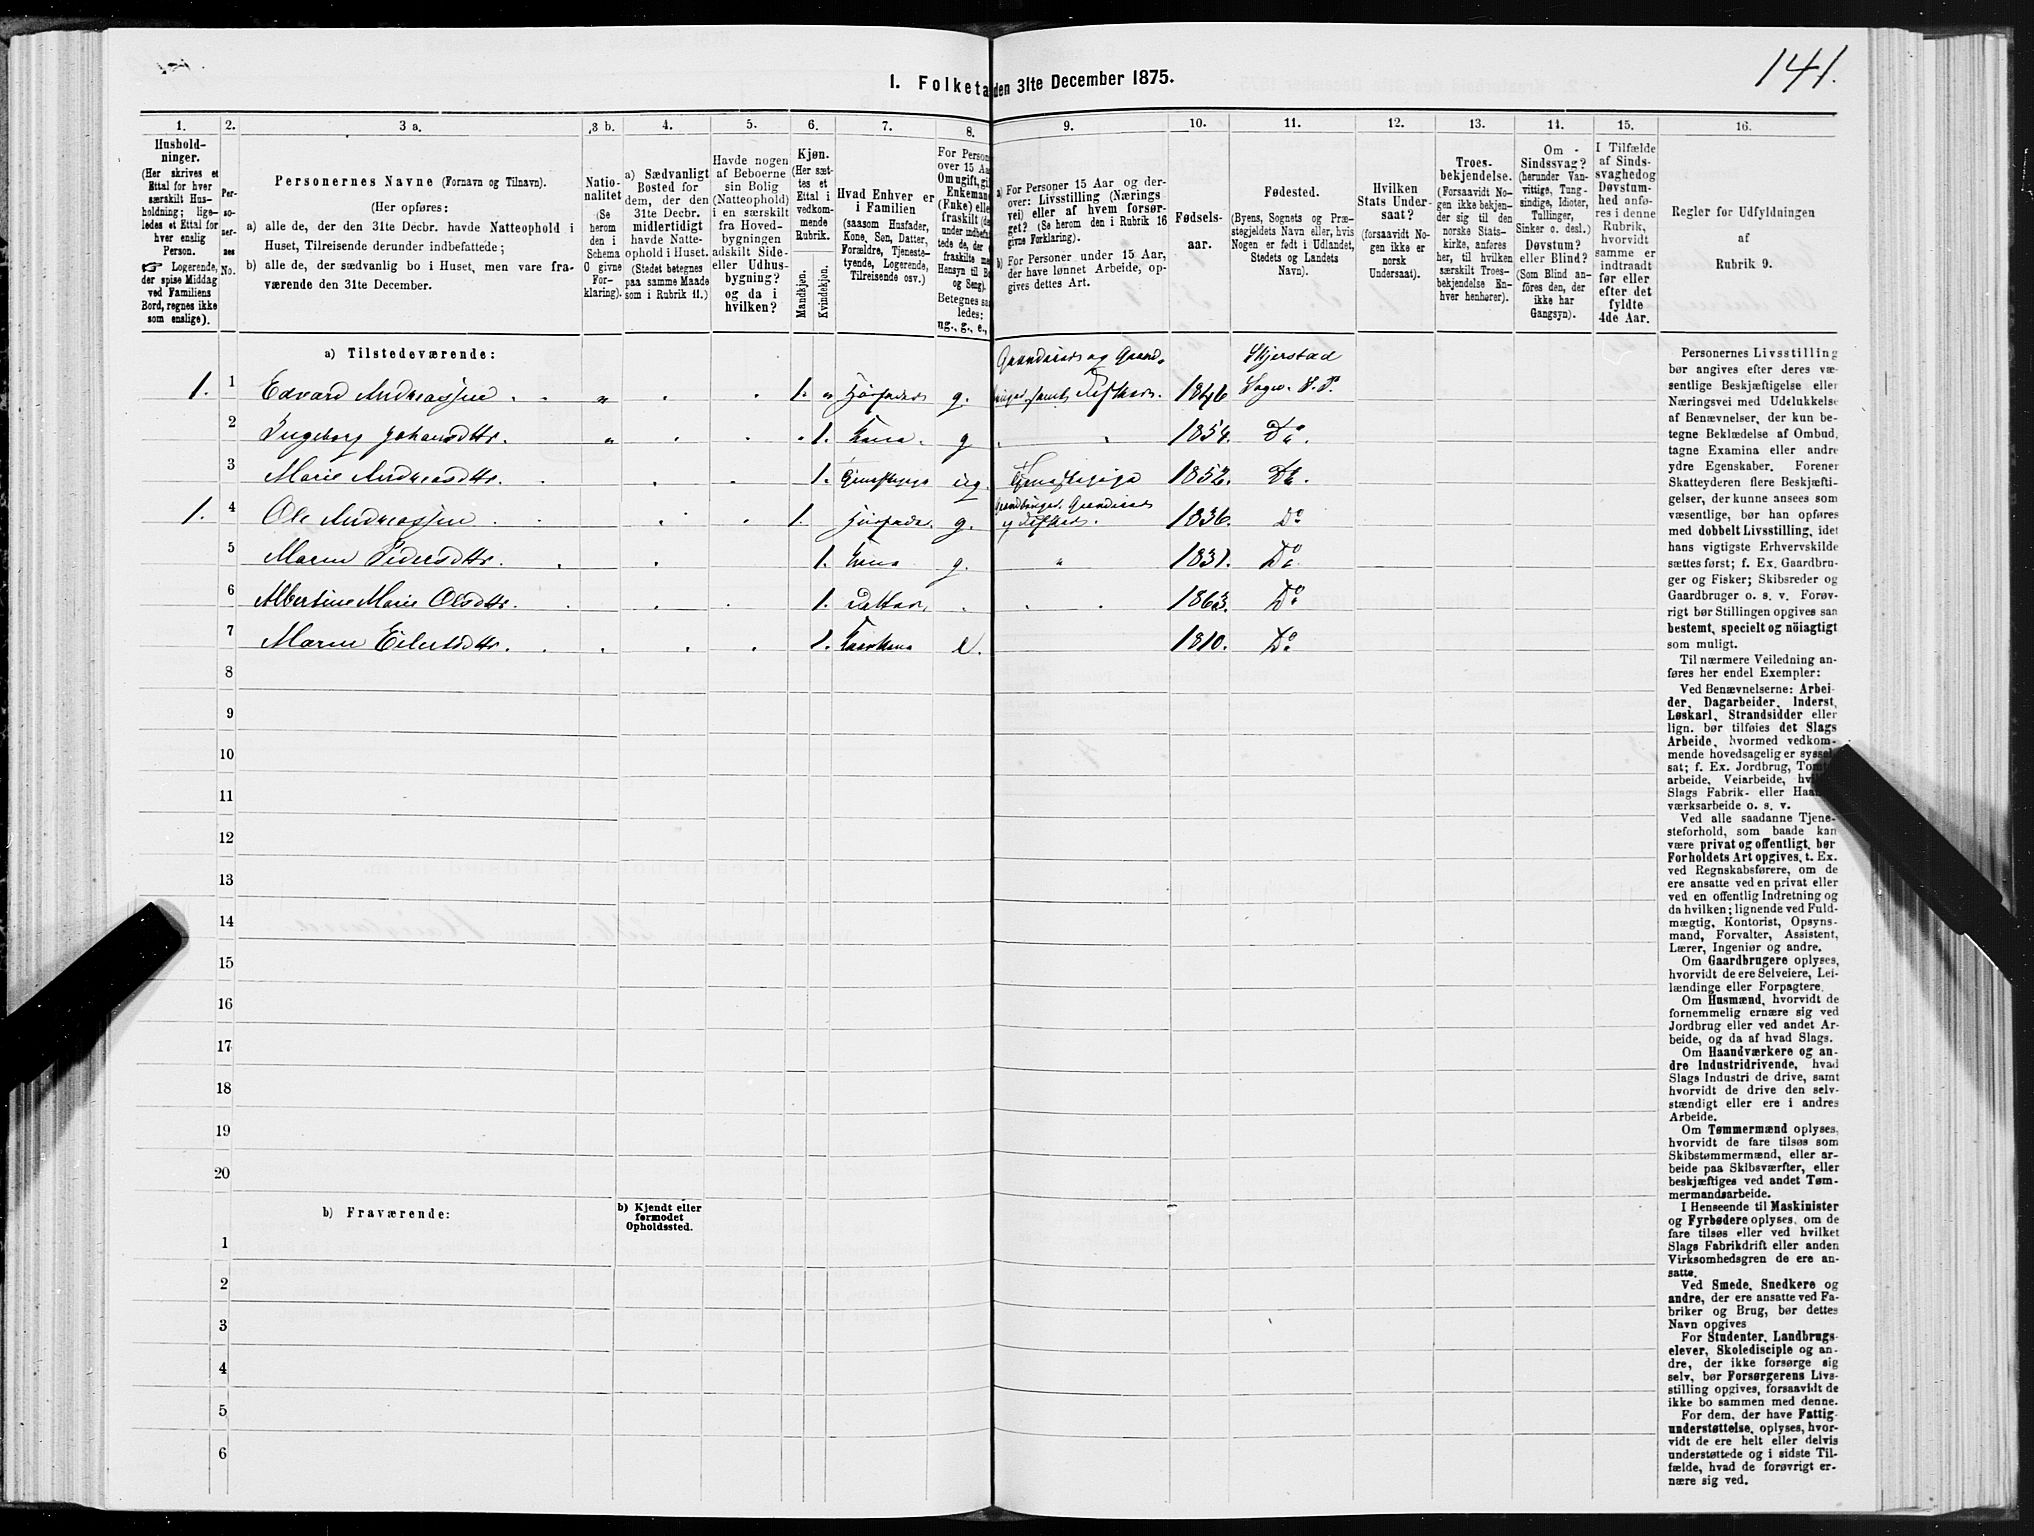 141.
I. Folketa den 31te December 1875.
1. 2. 3 a. 3 b. 4. 5. 6. 7. 8. 9. 10. 11. 12. 13. 14. 15. 16.
Hushold-
ninger.
(Her skrives et
Ettal for hver
særskilt Hus-
holdning; lige-
ledes et Ettal for
hver enslig
Person.
☞ Logerende,
der spise Middag
ved Familiens
Bord, regnes ikke
som enslige).
Per-
so-
ner-
nes
No.
Personernes Navne (Fornavn og Tilnavn).
(Her opføres:
a) alle de, der den 31te Decbr. havde Natteophold i
Huset, Tilreisende derunder indbefattede;
b) alle de, der sædvanlig bo i Huset, men vare fra-
værende den 31te December.
Natio-
nalitet
(Se
herom
den i
Schema
O givne
For-
klaring).
a) Sædvanligt
Bosted for
dem, der den
31te Decbr.
midlertidigt
havde Natte-
ophold i Huset.
(Stedet betegnes
paa samme Maade
som i Rubrik 11.)
Havde nogen
af Beboerne
sin Bolig
(Natteophold)
i en særskilt
fra Hoved-
bygningen
adskilt Side-
eller Udhus-
bygning?
og da i
hvilken?
Kjøn.
(Her sæt-
tes et
Ettal i
vedkom-
mende
Rubrik.
Mandkjøn.
Kvindekjøn.
Hvad Enhver er
i Familien
(saasom Husfader,
Kone, Søn, Datter,
Forældre, Tjeneste-
tyende, Logerende,
Tilreisende osv.)
For Person
over 15 Aa
Om ugift, gi
Enkeman
(Enke) elle
fraskilt (de
under indbefa
tede de, der
fraskilte me
Hensyn til Bo
og Seng).
Betegnes sa
ledes:
ug., g., e.,
a) For Personer 15 Aar og der-
over: Livsstilling (Nærings
vei) eller af hvem forsør-
get? (Se herom den i Rubrik 16
givne Forklaring).
b) For Personer under 15 Aar,
der have lønnet Arbeide, op-
gives dettes Art.
Fødsels-
aar.
Fødested.
(Byens, Sognets og Præ-
stegjeldets Navn eller, hvis
Nogen er født i Udlandet,
Stedets og Landets
Navn).
Hvilken
Stats Under-
saat?
(forsaavidt No-
gen ikke er
norsk
Undersaat).
Troes-
bekjendelse.
(Forsaavidt No-
gen ikke bekjen-
der sig til den
norske Stats-
kirke, anføres
her, til hvilken
særskilt Troes-
bekjendelse En-
hver henhører).
Om
Sindssvag?
(herunder Van-
vittige, Tung-
sindige, Idioter,
Tullinger,
Sinker o. desl.)
Døvstum?
eller Blind?
(Som Blind an-
føres den, der
ikke har
Gangsyn).
I Tilfælde
af Sinds-
svaghed og
Døvstum-
hed anfø-
res i denne
Rubrik,
hvorvidt
samme er
indtraadt
før eller
efter det
fyldte
4de Aar.
Regler for Udfyldningen
af
Rubrik 9.
a) Tilstedeværende:
1. 1 Edvard Andreassen 1. g. 1846 Skjerstad
2 Ingeborg Johansdttr. 1. Kona. g 1854. Do.
3 Marie Andreasdttr. 1. ug. 1852. Do.
1. 4 Ole Andreassen 1. g. 1836. Do
5 Maren Pedersdttr. 1. Kona g. 1831. Do
6 Albertine Marie Olsdttr. 1. Datter 1863. Do
7 Maren Eilertsdttr. 1. e. 1810. Do
8
9
10
11
12
13
14
15
16
17
18
19
20
b) Fraværende:
b) Kjendt eller
formodet
Opholdssted.
1
2
3
4
5
6
Personernes Livsstilling
bør angives efter deres væ-
sentlige Beskjæftigelse eller
Næringsvei med Udelukkelse
af Benævnelser, der kun be-
tegne Beklædelse af Ombud,
tagne Examina eller andre
ydre Egenskaber. Forener
Skatteyderen flere Beskjæfti-
gelser, der kunne ansees som
væsentlige, bør han opføres
med dobbelt Livsstilling, idet
hans vigtigste Erhvervskilde
sættes først; f. Ex. Gaardbru-
ger og Fisker; Skibsreder og
Gaardbruger o. s. v. Forøv-
rigt bør Stillingen opgives saa
bestemt, specielt og nöiagtigt
som muligt.
Til nærmere Veiledning an-
føres her endel Exempler:
Ved Benævnelserne: Arbei-
der, Dagarbeider, Inderst,
Løskarl, Strandsidder eller
lign. bør tilføies det Slags
Arbeide, hvormed vedkom-
mende hovedsagelig er syssel-
sat; f. Ex. Jordbrug, Tomte-
arbeide, Veiarbeide, hvilket
Slags Fabrik- eller Haand-
værksarbeide o. s. v.
Ved alle saadanne Tjene-
steforhold, som baade kan
være privat og offentligt, bør
Forholdets Art opgives, t. Ex.
ved Regnskabsførere, om de
ere ansatte ved en privat eller
ved en offentlig Indretning og
da hvilken; lignende ved Fuld-
mægtig, Kontorist, Opsyns-
mand, Forvalter, Assistent,
Lærer, Ingeniør og andre.
Om Gaardbrugere oplyses,
hvorvidt de ere Selveiere, Lei-
lændinge eller Forpagtere.
Om Husmænd, hvorvidt de
fornemmelig ernære sig ved
Jordbrug eller ved andet Ar-
beide, og da af hvad Slags.
Om Haandværkere og an-
dre Industridrivende, hvad
Slags Industri de drive, samt
hvorvidt de drive den selv-
stændigt eller ere i andres
Arbeide.
Om Tømmermænd oplyses,
hvorvidt de fare tilsøs som
Skibstømmermænd, eller ar-
beide paa Skibsværfter, eller
beskjæftiges ved andet Tøm-
mermandsarbeide.
I Henseende til Maskinister
og Fyrbødere oplyses, om de
fare tilsøs eller ved hvilket
Slags Fabrikdrift eller anden
Virksomhedsgren de ere an-
satte.
Ved Smede, Snedkere og
andre, der ere ansatte ved Fa-
briker og Brug, bør dettes
Navn opgives
For Studenter, Landbrugs-
elever, Skoledisciple og an-
dre, der ikke forsørge sig
selv, bør Forsørgerens Livs-
stilling opgives, forsaavidt de
ikke bo sammen med denne.
For dem, der have Fattig-
understøttelse, oplyses, hvor-
vidt de ere helt eller delvis
understøttede og i sidste Til-
fælde, hvad de forøvrigt er-
nære sig ved.